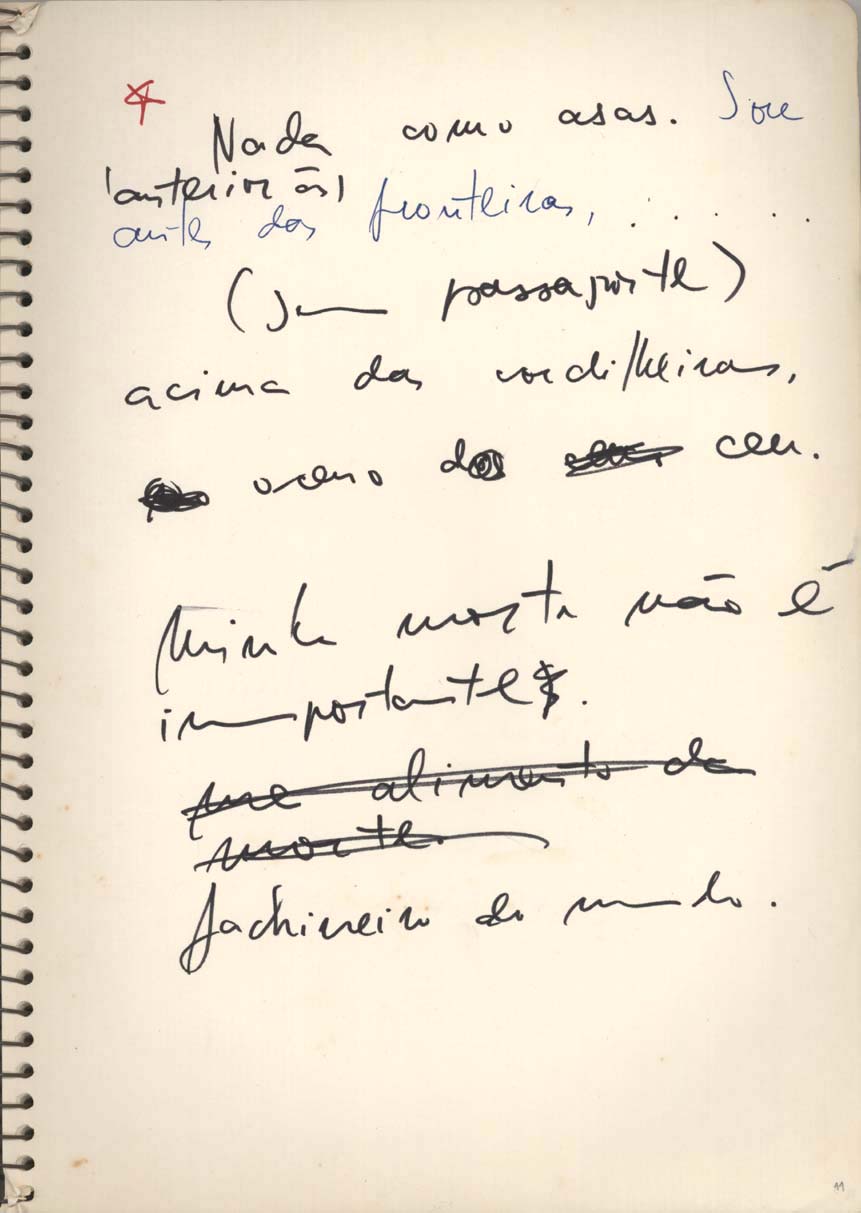 Nada como asas. Sou
(anterior às)
antes das fronteiras, . . . . .
(sem passaporte)
acima das cordilheiras,
oceano do céu.
Minha morte não é
importante.
me alimento da
morte.
fachineiro do mundo.
11